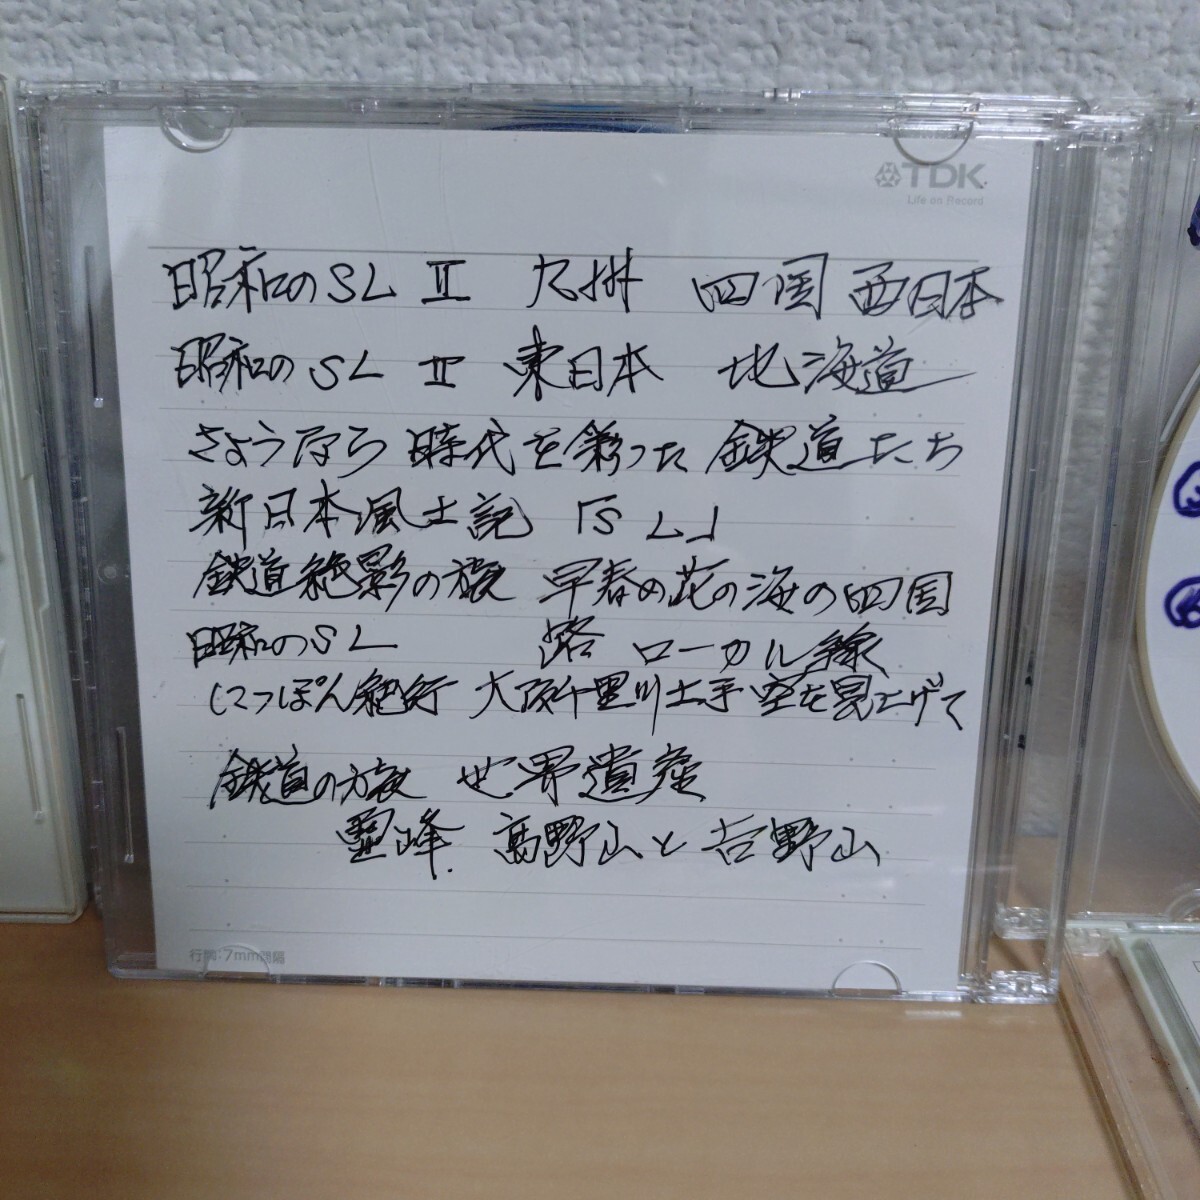 TDK
Life on Record
昭和のSL Ⅱ 九州 四国 西日本
昭和のSL Ⅲ 東日本 北海道
さようなら 時代を彩った 鉄道たち
新日本風土記 「SL」
鉄道絶景の旅 早春の花の海の四国
昭和のSL 路 ローカル線
にっぽん絶行 大阪千里川土手 空を見上げて
鉄道の旅 世界遺産
霊峰 高野山と吉野山
行間:7mm間隔